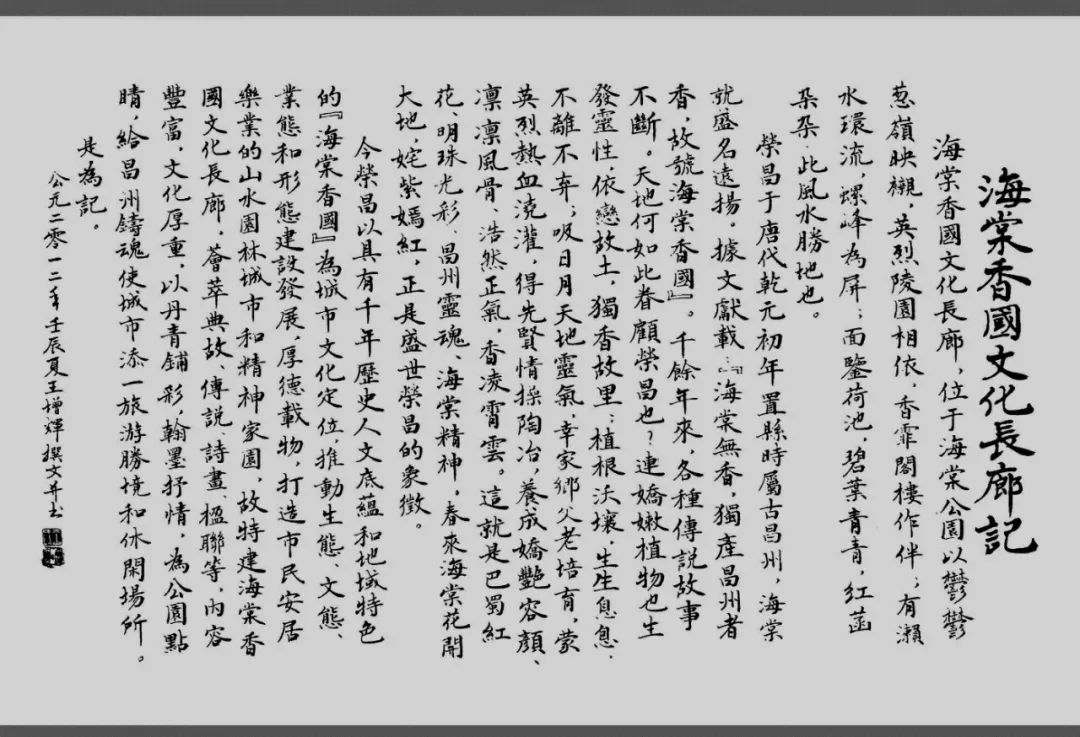 海棠香國文化長廊記
海棠香國文化長廊，位于海棠公園以鬱鬱
蔥嶺映襯，英烈陵園相依，香霏閣樓作伴；有瀨
水環流，螺峰為屏；面鑒荷池，碧葉青青，紅菡
朵朵，此風水勝地也。
榮昌于唐代乾元初年置縣時屬古昌州，海棠
就盛名遠揚，據文獻載：『海棠無香，獨產昌州者
香，故號海棠香國』。千餘年來，各種傳説故事
不斷。天地何如此眷顧榮昌也？連嬌嫩植物也生
發靈性，依戀故土，獨香故里；植根沃壤，生生息息，
不離不弃；吸日月天地靈氣，幸家鄉父老培育，蒙
英烈熱血澆灌，得先賢情操陶冶，養成嬌艷容顏、
凛凛風骨、浩然正氣，香凌霄雲。這就是巴蜀紅
花、明珠光彩、昌州靈魂、海棠精神，春來海棠花開
大地，姹紫嫣紅，正是盛世榮昌的象徵。
今榮昌以具有千年歷史人文底蘊和地域特色
的『海棠香國』為城市文化定位，推動生態、文態、
業態和形態建設發展，厚德載物，打造市民安居
樂業的山水園林城市和精神家園，故特建海棠香
國文化長廊，薈萃典故、傳説、詩畫、楹聯等，内容
豐富，文化厚重，以丹青鋪彩，翰墨抒情，為公園點
睛，給昌州鑄魂使城市添一旅游勝境和休閑場所。
是為記。
公元二零一二年壬辰夏王增輝撰文并书